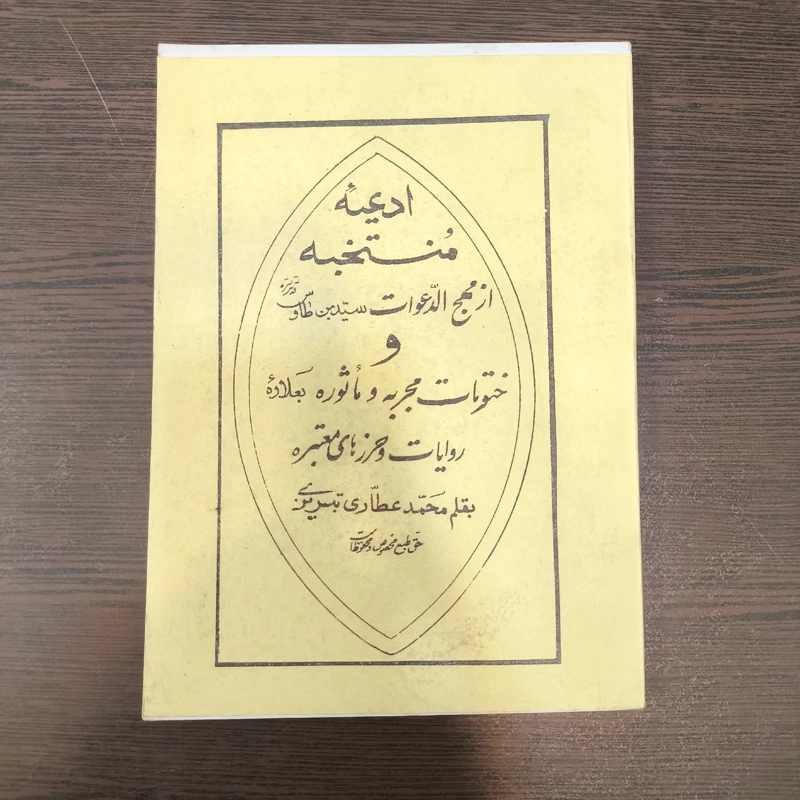 ادعیهٔ
مُنتخبه
از مهج الدّعوات سیّد بن طاوس قدس سره
و
ختومات مجربه و مأثوره بعلاوهٔ
روایات و حرزهای معتبره
بقلم محمّد عطّاری تبریزی
حق طبع مخصوص و محفوظ است